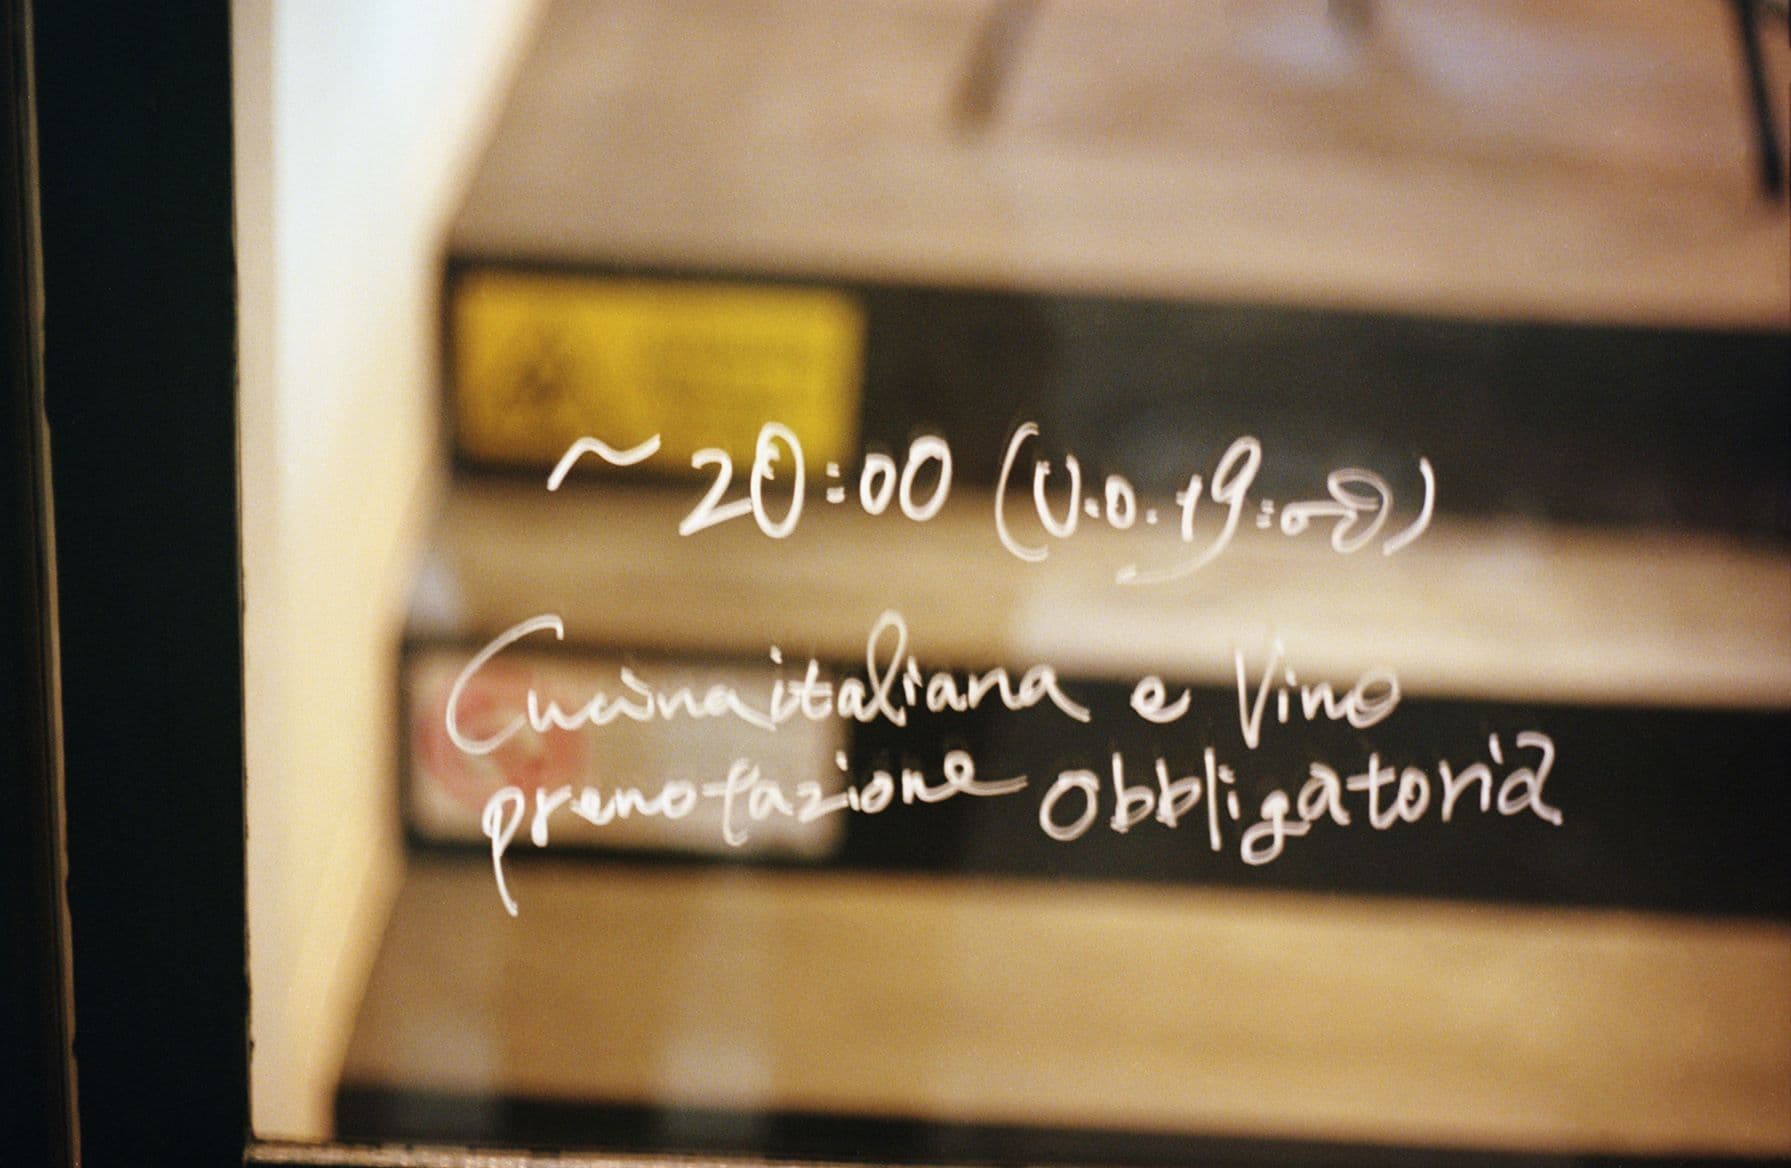 ~20:00 (U.O.19:00)
Cucina italiana e Vino
prenotazione obbligatoria